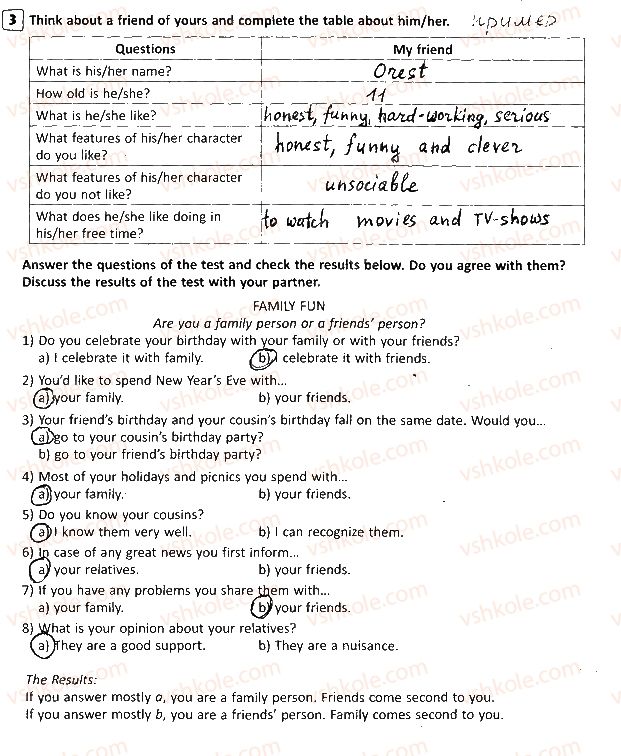 3 Think about a friend of yours and complete the table about him/her. пример
Questions My friend
What is his/her name? Orest
How old is he/she? 11
What is he/she like? honest, funny, hard-working, serious
What features of his/her character
do you like? honest, funny and clever
What features of his/her character
do you not like? unsociable
What does he/she like doing in
his/her free time? to watch movies and TV-shows
Answer the questions of the test and check the results below. Do you agree with them?
Discuss the results of the test with your partner.
FAMILY FUN
Are you a family person or a friends' person?
1) Do you celebrate your birthday with your family or with your friends?
a) I celebrate it with family. b) I celebrate it with friends.
2) You'd like to spend New Year's Eve with...
a) your family. b) your friends.
3) Your friend's birthday and your cousin's birthday fall on the same date. Would you...
a) go to your cousin's birthday party?
b) go to your friend's birthday party?
4) Most of your holidays and picnics you spend with...
a) your family. b) your friends.
5) Do you know your cousins?
a) I know them very well. b) I can recognize them.
6) In case of any great news you first inform...
a) your relatives. b) your friends.
7) If you have any problems you share them with...
a) your family. b) your friends.
8) What is your opinion about your relatives?
a) They are a good support. b) They are a nuisance.
The Results:
If you answer mostly a, you are a family person. Friends come second to you.
If you answer mostly b, you are a friends' person. Family comes second to you.
vshkole.com